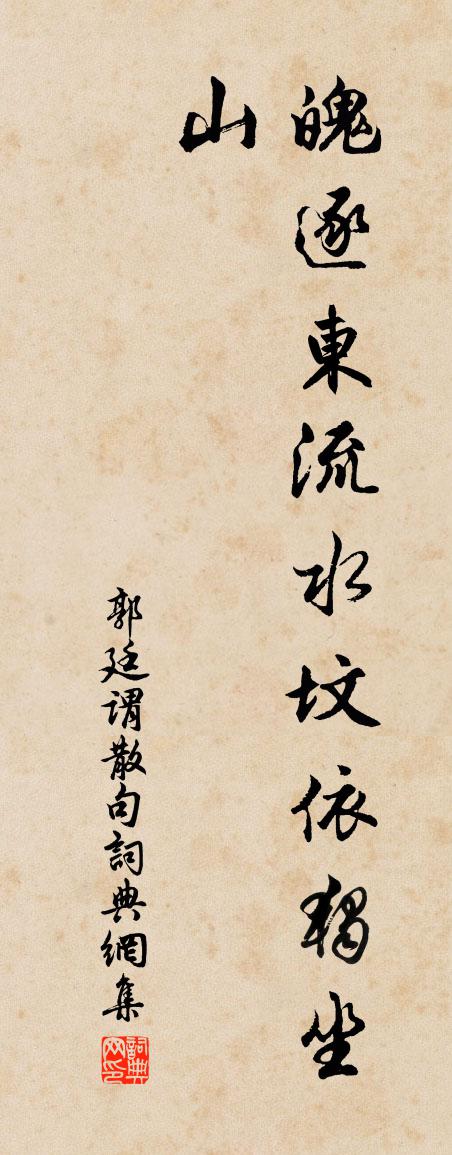 魄逐東流水坟依獨坐
山
郭廷谓散句詞典網集
詞典网印